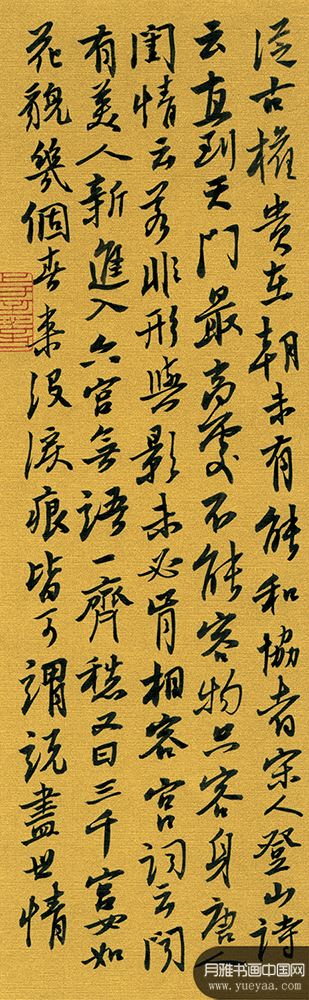 從古權貴在朝未有能和協者宋人登山詩
云直到天門最高處不能容物只容身唐人
閨情云若非形與影未必肯相容宮詞云聞
有美人新進入六宮無語一齊愁又曰三千宮女如
花貌幾個春來沒淚痕皆可謂說盡世情
月雅书画中国网
www.yueyaa.com